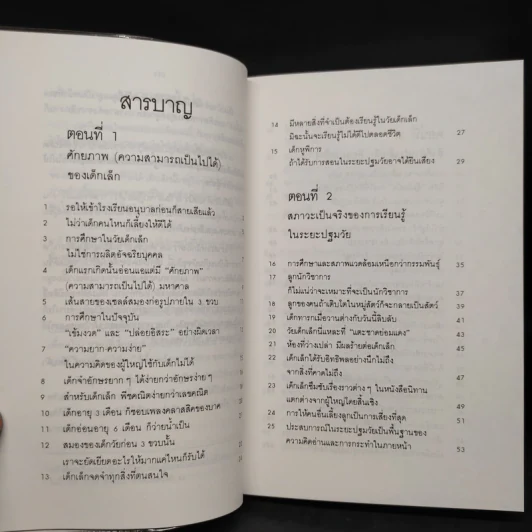 สารบาญ
ตอนที่ 1
ศักยภาพ (ความสามารถเป็นไปได้)
ของเด็กเล็ก
1 รอให้เข้าโรงเรียนอนุบาลก่อนก็สายเสียแล้ว
2 ไม่ว่าเด็กคนไหนก็เลี้ยงให้ดีได้
3 การศึกษาในวัยเด็กเล็ก
ไม่ใช่การผลิตอัจฉริยบุคคล
4 เด็กแรกเกิดนั้นอ่อนแอแต่มี "ศักยภาพ"
(ความสามารถเป็นไปได้) มหาศาล
5 เส้นสายของเซลล์สมองก่อรูปภายใน 3 ขวบ
6 การศึกษาในปัจจุบัน
"เข้มงวด" และ "ปล่อยอิสระ" อย่างผิดเวลา
7 "ความยาก-ความง่าย"
ในความคิดของผู้ใหญ่ใช้กับเด็กไม่ได้
8 เด็กจำอักษรยาก ๆ ได้ง่ายกว่าอักษรง่าย ๆ
9 สำหรับเด็กเล็ก พีชคณิตง่ายกว่าเลขคณิต
10 เด็กอายุ 3 เดือน ก็ชอบเพลงคลาสสิคของบาค
11 เด็กอ่อนอายุ 6 เดือน ก็ว่ายน้ำเป็น
12 สมองของเด็กวัยก่อน 3 ขวบนั้น
เราจะยัดเยียดอะไรให้มากแค่ไหนก็รับได้
13 เด็กเล็กจดจำทุกสิ่งที่ตนสนใจ
14 มีหลายสิ่งที่จำเป็นต้องเรียนรู้ในวัยเด็กเล็ก
มิฉะนั้นจะเรียนรู้ไม่ได้ดีไปตลอดชีวิต 27
15 เด็กหูพิการ
ถ้าได้รับการสอนในระยะปฐมวัยอาจได้ยินเสียง 29
ตอนที่ 2
สภาวะเป็นจริงของการเรียนรู้
ในระยะปฐมวัย
16 การศึกษาและสภาพแวดล้อมเหนือกว่ากรรมพันธุ์ 35
17 ลูกนักวิชาการ
ก็ไม่แน่ว่าจะเหมาะที่จะเป็นนักวิชาการ 37
18 ลูกของคนถ้าเติบโตในหมู่สัตว์ก็จะกลายเป็นสัตว์ 39
19 เด็กทารกเมื่อวานต่างกับวันนี้ลิบลับ 41
20 วัยเด็กเล็กนี่แหละที่ "แตะชาดย่อมแดง" 43
21 ห้องที่ว่างเปล่า มีผลร้ายต่อเด็กเล็ก 45
22 เด็กเล็กได้รับอิทธิพลอย่างนึกไม่ถึง
จากสิ่งที่คาดไม่ถึง 47
23 เด็กเล็กซึมซับเรื่องราวต่าง ๆ ในหนังสือนิทาน
แตกต่างจากผู้ใหญ่โดยสิ้นเชิง 49
24 การให้คนอื่นเลี้ยงลูกเป็นการเสี่ยงที่สุด 51
25 ประสบการณ์ในระยะปฐมวัยเป็นพื้นฐานของ
ความคิดอ่านและการกระทำในภายหน้า 53